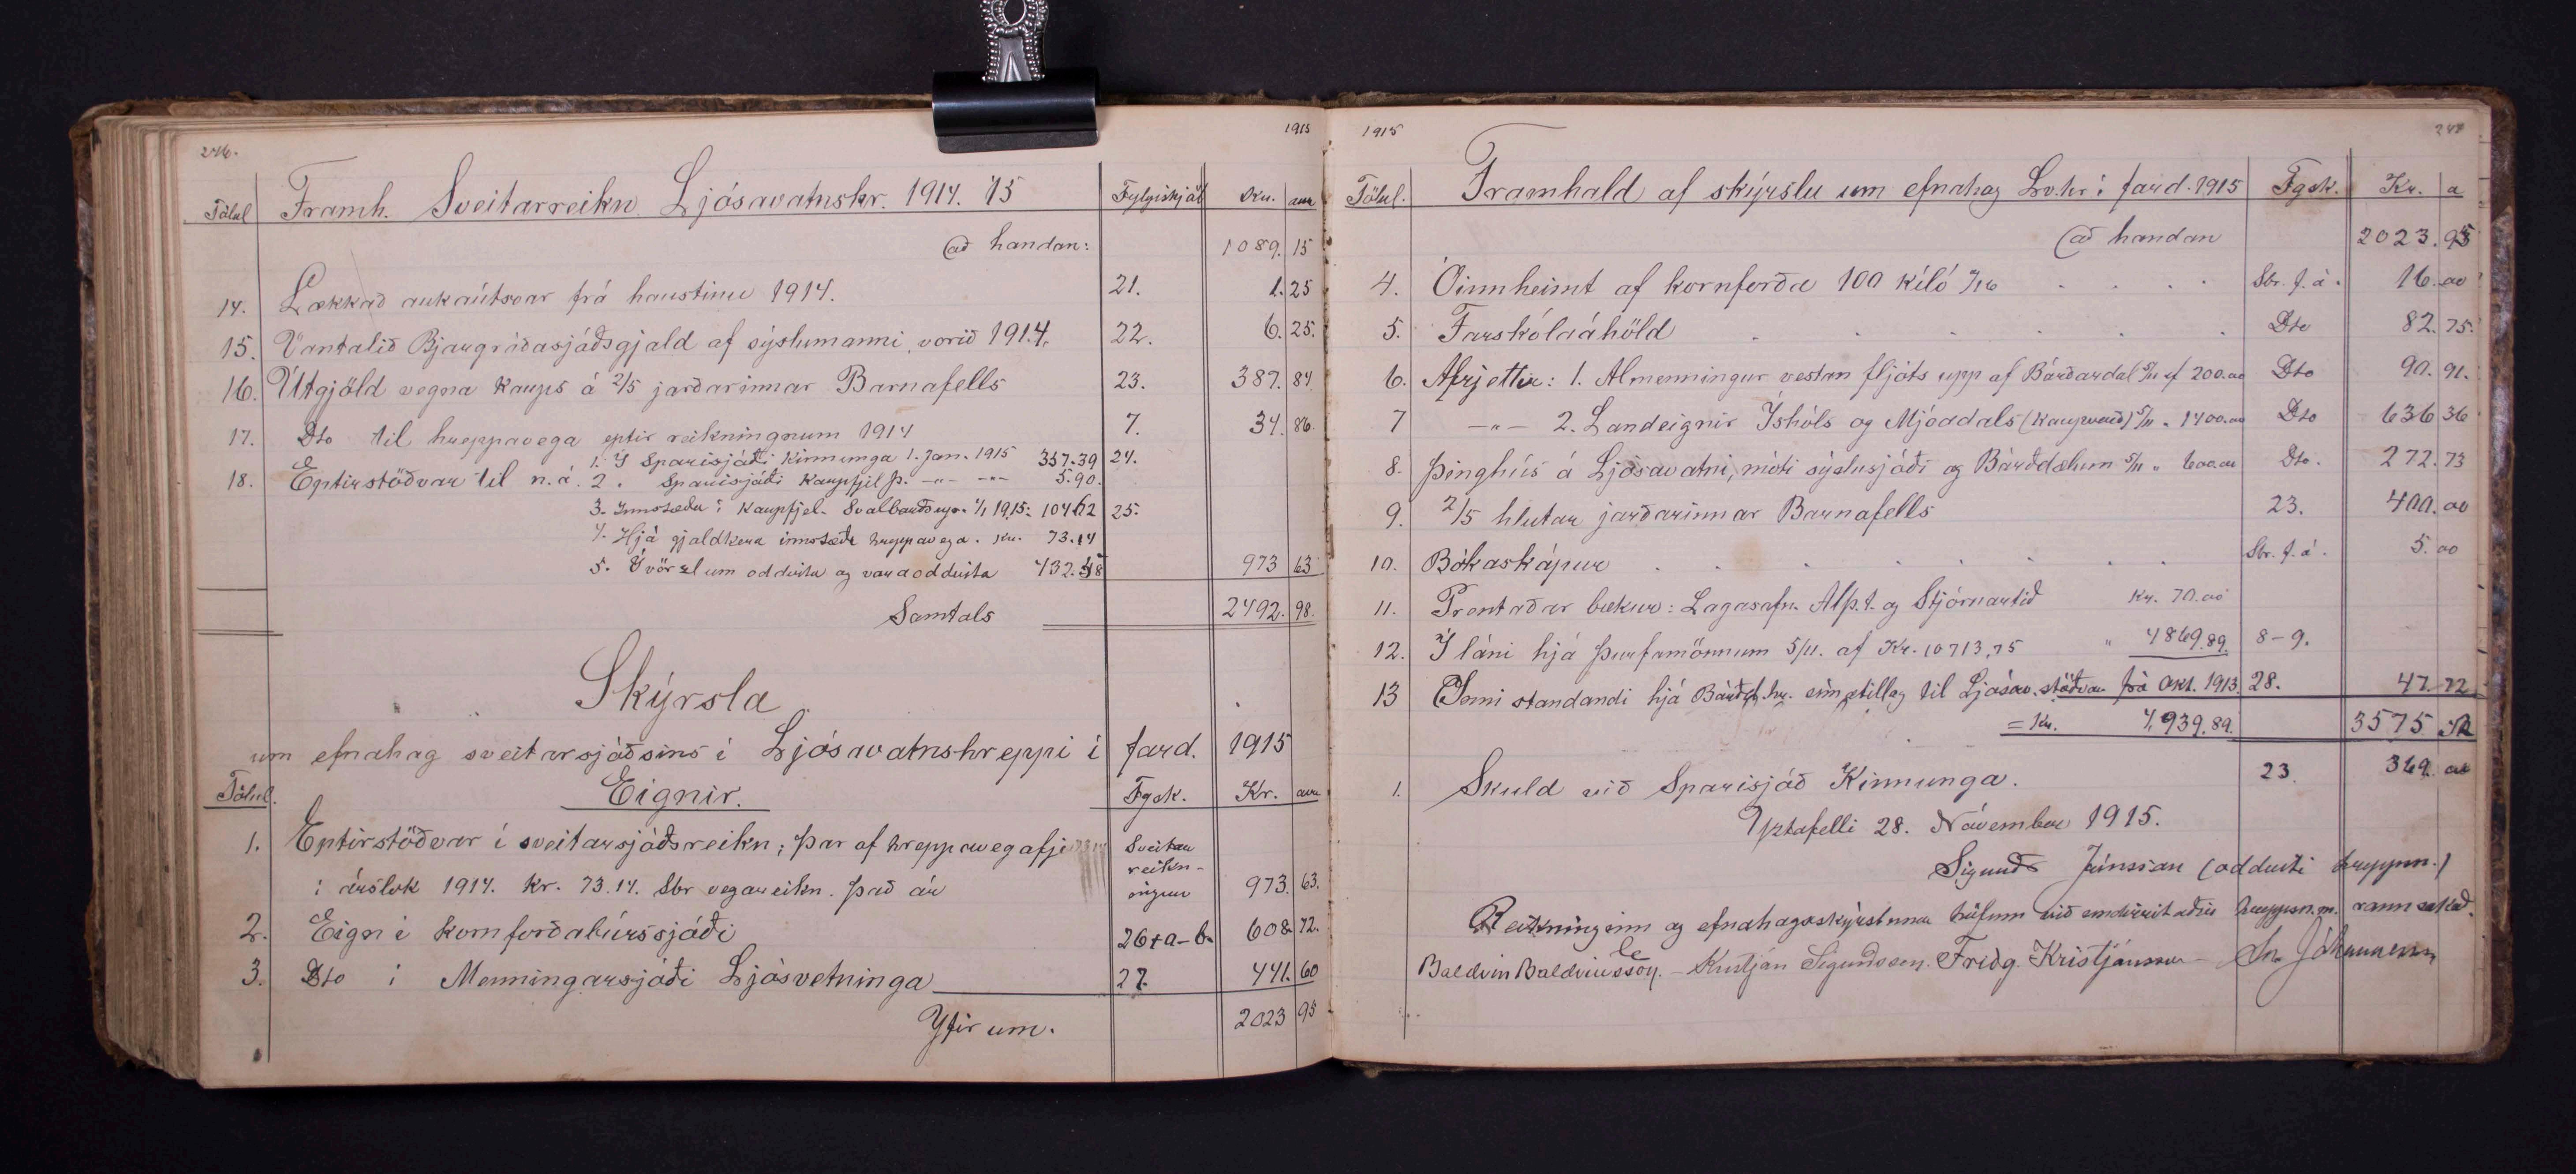 246. 1915
Tölul Framh. Sveitarreikn. Ljósavatnshr. 1914. '15 Fylgiskjöl Kr. aur
Að handan: 1089. 15
14. Lækkað aukaútsvar frá haustinu 1914. 21. 1. 25
15. Vantalið Bjargráðasjóðsgjald af sýslumanni, vorið 1914. 22. 6. 25.
16. Útgjöld vegna kaups á 2/5 jarðarinnar Barnafells 23. 387. 84
17. Dto til hreppavega eptir reikningnum 1914 7. 34. 86.
18. Eptirstöðvar til n. á. 1. Í Sparisjóði Kinnunga 1. Jan. 1915 357.39 24.
2. Sparisjóði Kaupfjel Þ. -"- -"- 5.90.
3. Innstæða í Kaupfjel. Svalbarðseyr. 1/1 1915: 104.62 25.
4. Hjá gjaldkera innstæða hreppavega. Kr. 73.14
5. Í vörzlum oddvita og varaoddvita 432.58 973 63
Samtals 2492. 98.
Skýrsla
um efnahag sveitarsjóðsins í Ljósavatnshreppi í fard. 1915
Tölul. Eignir. Fgsk. Kr. aur
1. Eptirstöðvar í sveitarsjóðsreikn; þar af hreppavegafje Sveitar
í árslok 1914. Kr. 73.14. Sbr vegareikn. það ár reikn-ingur 973. 63.
2. Eign í kornforðabúrssjóði 26+a-b. 608. 72.
3. Dto í Menningarsjóði Ljósvetninga 27. 441. 60
Yfir um. 2023 95
1915 247
Tölul. Framhald af skýrslu um efnahag Lv.hr. í fard. 1915 Fgsk. Kr. a
Að handan 2023. 95
4. Óinnheimt af kornforða 100 kíló /16 Sbr. f. á. 16. 00
5. Farskólaáhöld Dto 82. 75.
6. Afrjettir: 1. Almenningur vestan fljóts upp af Bárðardal 5/11 af 200.00 Dto 90. 91.
7 -"- 2. Landeignir Íshóls og Mjóadals (Kaupverð) 5/11 " 1400.00 Dto 636 36
8. Þinghús á Ljósavatni, móti sýslusjóði og Bárðdælum 5/11 " 600.00 Dto. 272. 73
9. 2/5 hlutar jarðarinnar Barnafells 23. 400. 00
10. Bókaskápur Sbr. f. á. 5. 00
11. Prentaðar bækur: Lagasafn. Alþ.t. og Stjórnartíð Kr. 70.00
12. Í láni hjá þurfamönnum 5/11. af Kr. 10713,75 " 4869.89. 8-9.
13 Inni standandi hjá Bárðd.hr. símatillag til Ljósav. stöðvar frá Okt. 1913 28. 47. 72
= Kr. 4,939.89. 3575 42
1. Skuld við Sparisjóð Kinnunga. 23. 369. 00
Yztafelli 28. Nóvember 1915.
Sigurðr Jónsson (oddviti hreppsn.)
Reikninginn og efnahagsskýrsluna höfum við undirritaðir hreppsn.m. rannsakað.
Baldvin Baldvinsson. - Kristján Sigurðsson. Friðg. Kristjánsson -